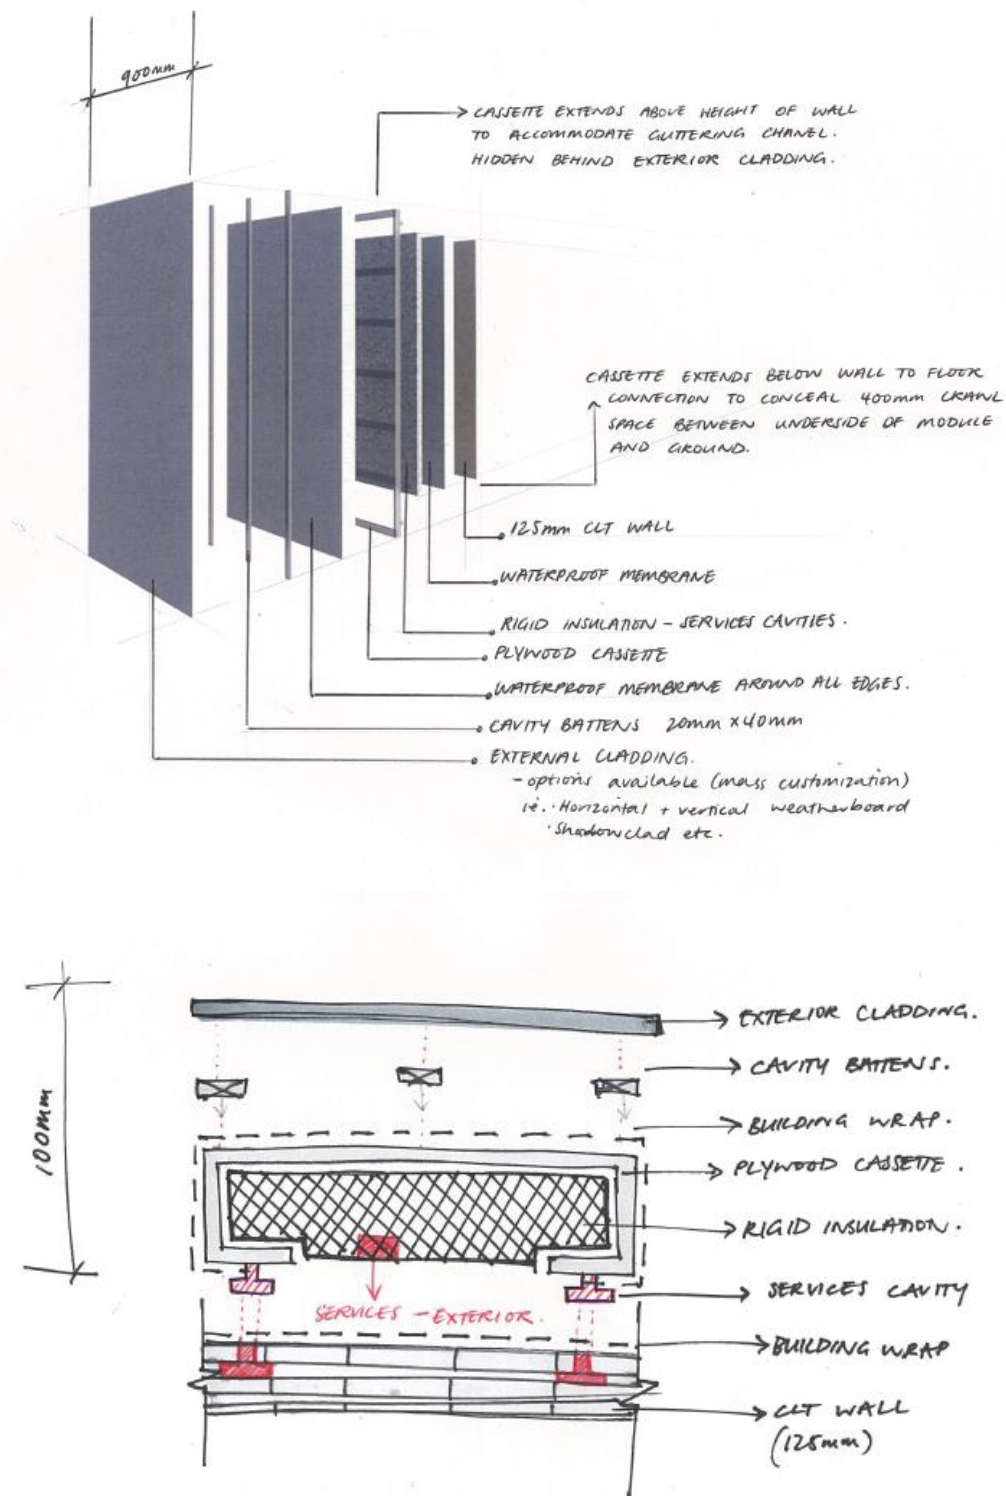 900mm
CASSETTE EXTENDS ABOVE HEIGHT OF WALL
TO ACCOMMODATE GUTTERING CHANEL.
HIDDEN BEHIND EXTERIOR CLADDING.
CASSETTE EXTENDS BELOW WALL TO FLOOR
CONNECTION TO CONCEAL 400mm CRAWL
SPACE BETWEEN UNDERSIDE OF MODULE
AND GROUND.
125mm CLT WALL
WATERPROOF MEMBRANE
RIGID INSULATION - SERVICES CAVITIES.
PLYWOOD CASSETTE
WATERPROOF MEMBRANE AROUND ALL EDGES.
CAVITY BATTENS 20mm x 40mm
EXTERNAL CLADDING.
- options available (mass customization)
ie. · Horizontal + vertical weatherboard
· Shadowclad etc.
100mm
EXTERIOR CLADDING.
CAVITY BATTENS.
BUILDING WRAP.
PLYWOOD CASSETTE.
RIGID INSULATION.
SERVICES CAVITY
SERVICES - EXTERIOR.
BUILDING WRAP
CLT WALL
(125mm)